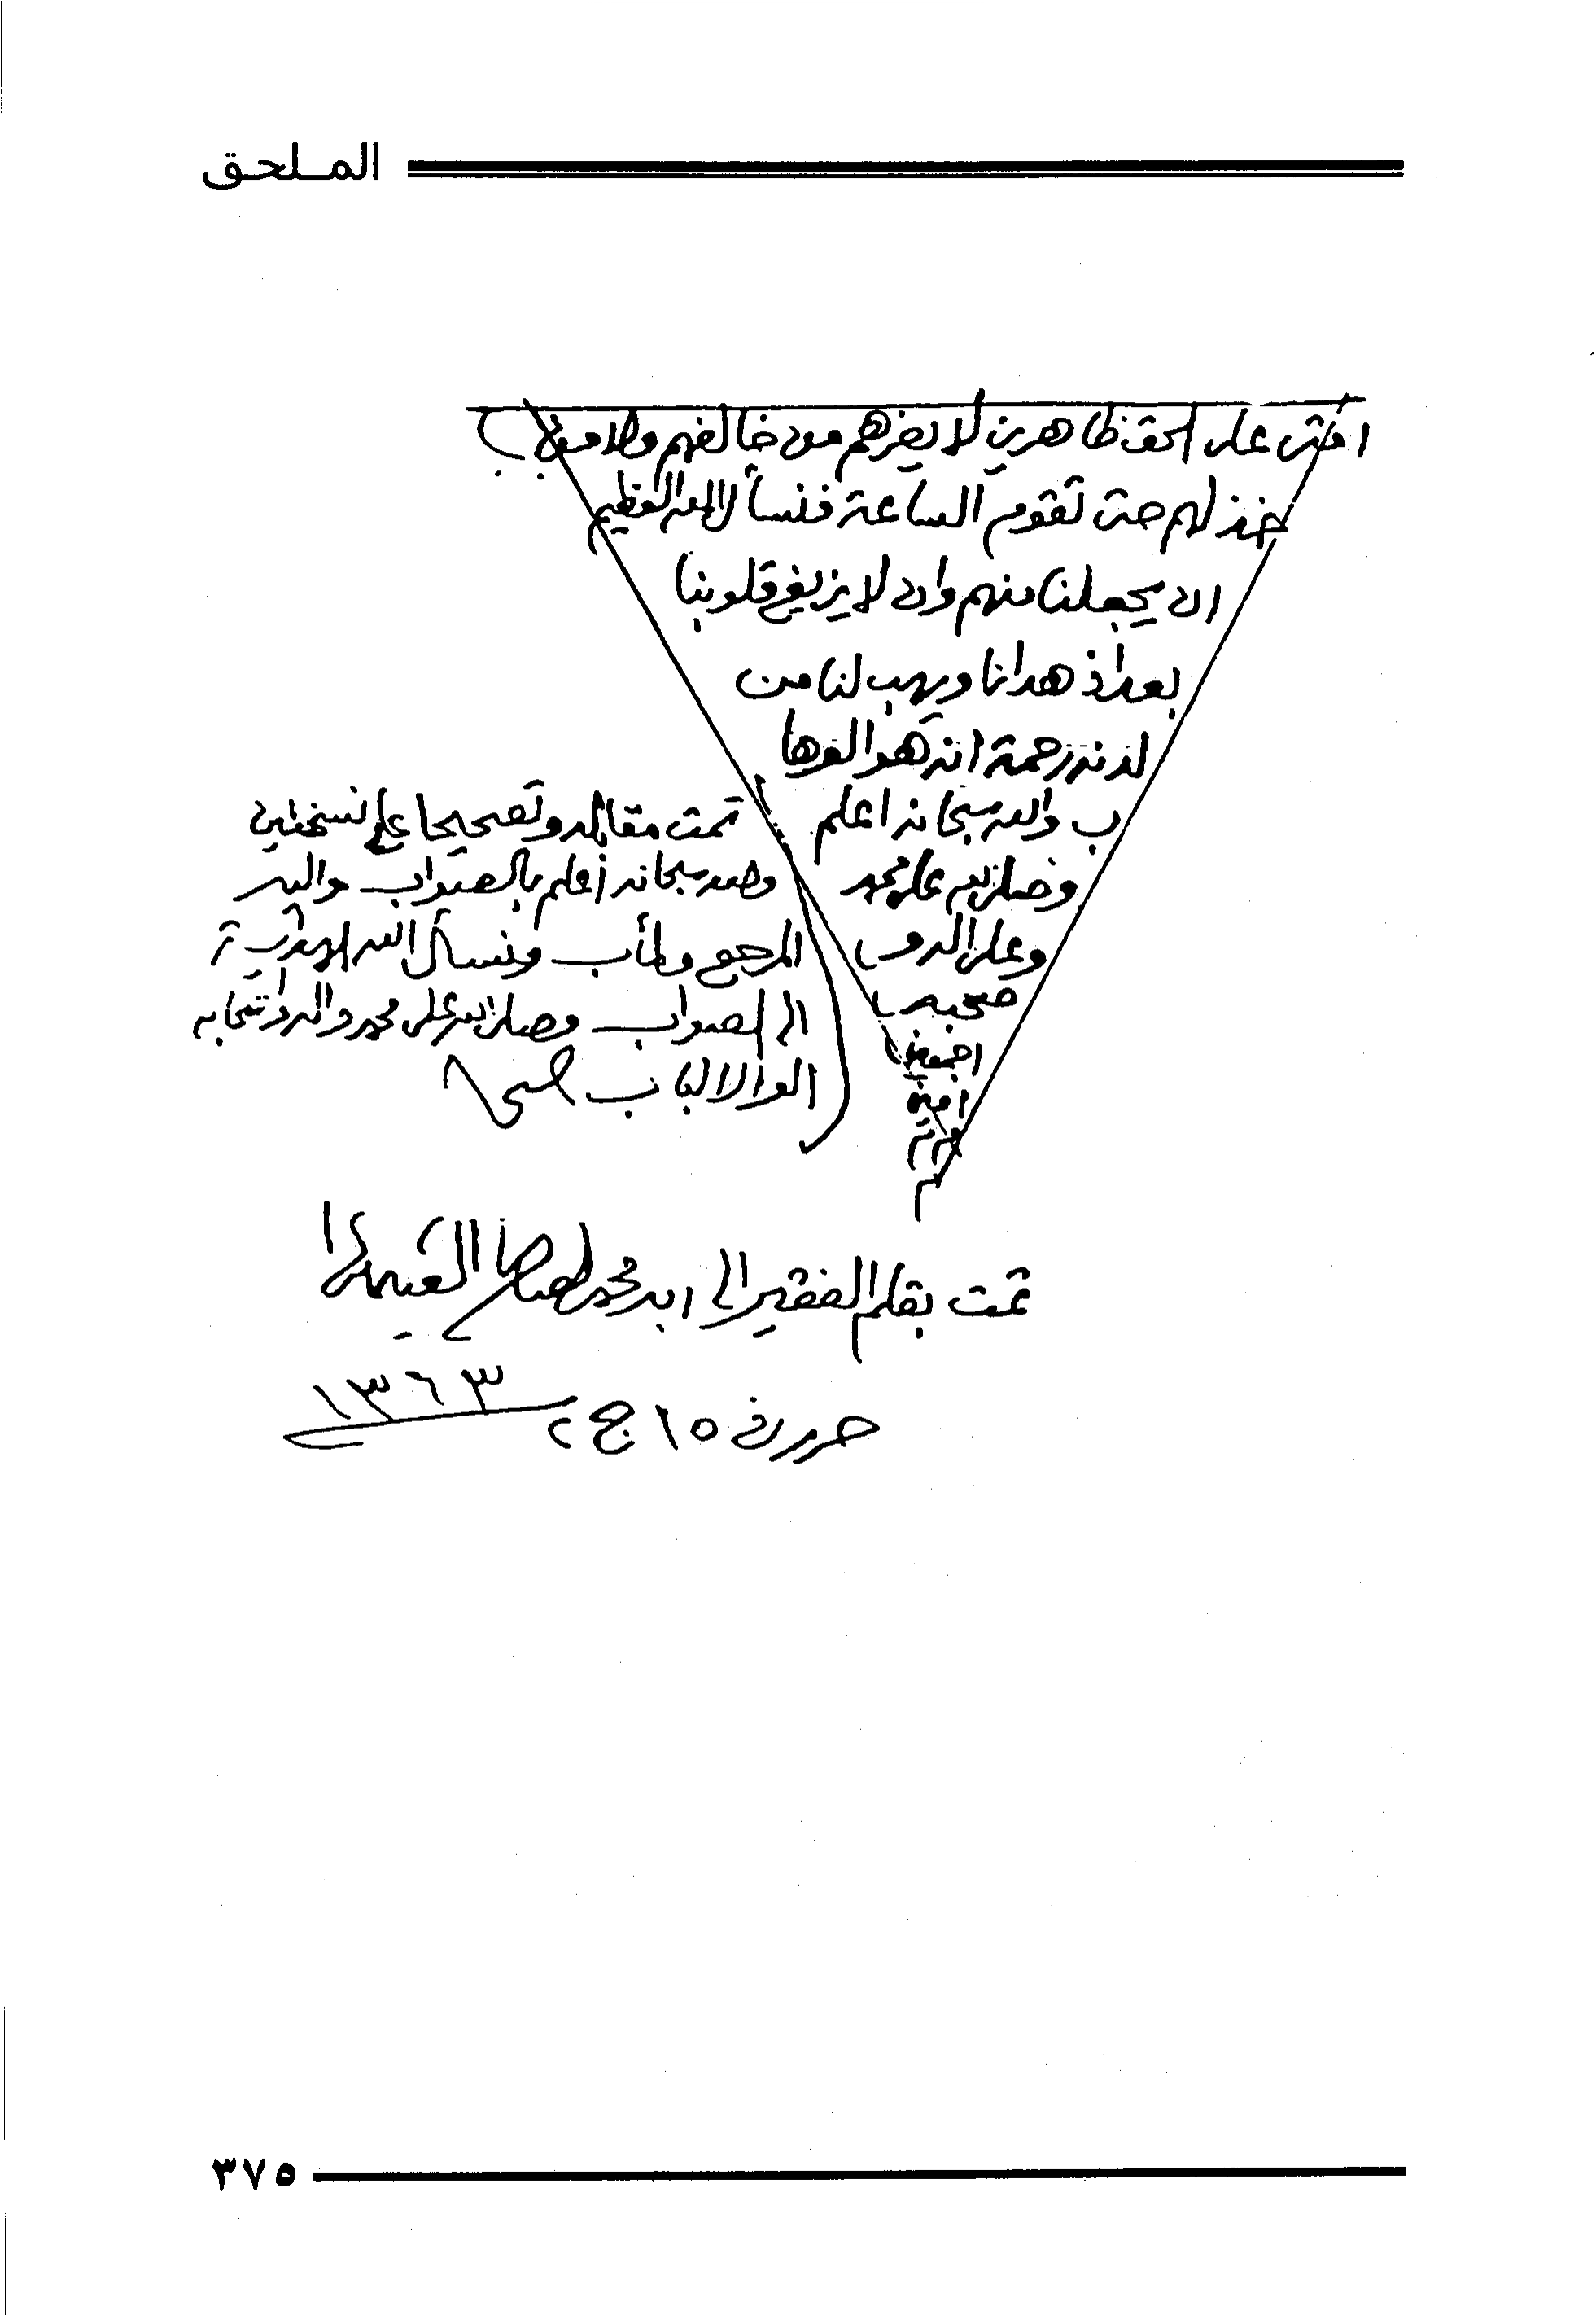 الملحق
امتي على الحق ظاهرين لا يضرهم من خالفهم ولا من
خذلهم حتى تقوم الساعة فنسأل الله العظيم
ان يجعلنا منهم وان لا يزيغ قلوبنا
بعد اذ هدانا ويهب لنا من
لدنه رحمة انه هو الوها
ب والله سبحانه اعلم
وصلى الله على محمد
وعلى اله و
صحبه
اجمعين
امين
تمت مقابلة وتصحيحا على نسختين
والله سبحانه أعلم بالصواب واليه
المرجع والمأب ونسأل الله الهداية
الى الصواب وصلى الله على محمد واله واصحابه
الوا الالباب
تمت بقلم الفقير الى الله محمد
حرر في ١٥ ج ٢ ١٣٦٣
٣٧٥